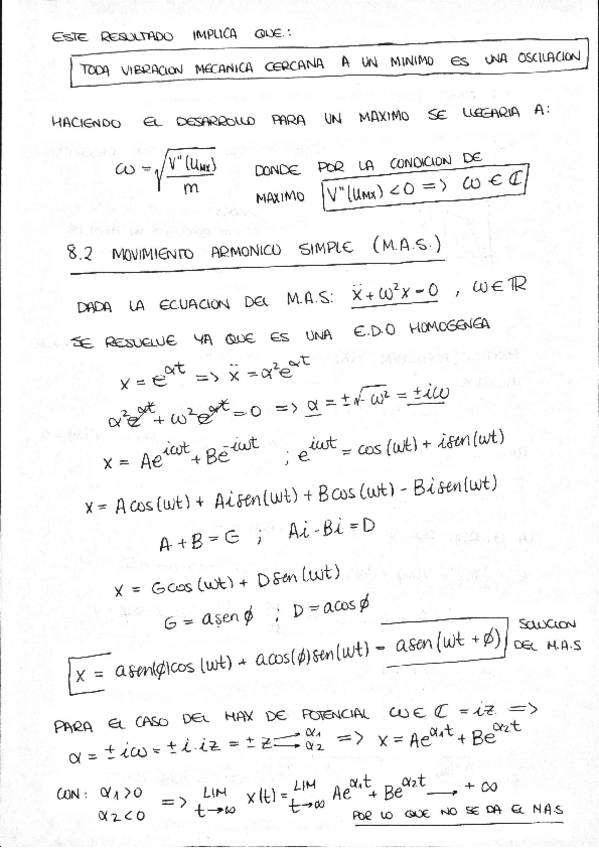 ESTE RESULTADO IMPLICA QUE:
TODA VIBRACION MECANICA CERCANA A UN MINIMO ES UNA OSCILACION
HACIENDO EL DESARROLLO PARA UN MAXIMO SE LLEGARIA A:
ω = √(V"(u_MAX)/m) DONDE POR LA CONDICION DE
MAXIMO V"(u_MAX) < 0 => ω ∈ ℂ
8.2 MOVIMIENTO ARMONICO SIMPLE (M.A.S.)
DADA LA ECUACION DEL M.A.S: ẍ + ω²x = 0 , ω ∈ ℝ
SE RESUELVE YA QUE ES UNA E.D.O HOMOGENEA
x = e^{αt} => ẍ = α²e^{αt}
α²e^{αt} + ω²e^{αt} = 0 => α = ±√-ω² = ±iω
x = Ae^{iωt} + Be^{-iωt} ; e^{iωt} = cos(ωt) + isen(ωt)
x = Acos(ωt) + Aisen(ωt) + Bcos(ωt) - Bisen(ωt)
A + B = G ; Ai - Bi = D
x = Gcos(ωt) + Dsen(ωt)
G = asenϕ ; D = acosϕ
x = asen(ϕ)cos(ωt) + acos(ϕ)sen(ωt) = asen(ωt + ϕ) SOLUCION
DEL M.A.S
PARA EL CASO DEL MAX DE POTENCIAL ω ∈ ℂ = iz =>
α = ±iω = ±i·iz = ±z → α₁ α₂ => x = Ae^{α₁t} + Be^{α₂t}
CON: α₁ > 0
α₂ < 0 => LIM t→∞ x(t) = LIM t→∞ Ae^{α₁t} + Be^{α₂t} → +∞
POR LO QUE NO SE DA EL M.A.S